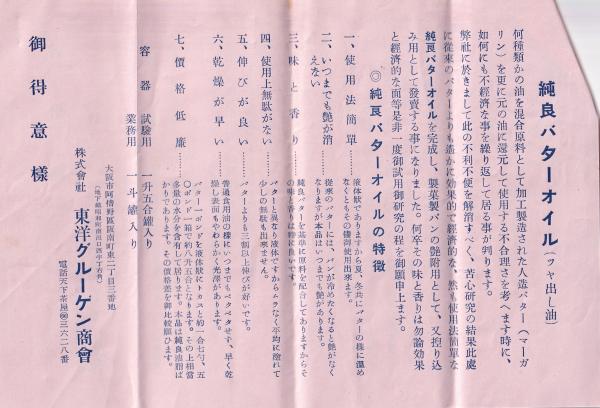 純良バターオイル(ツヤ出し油)
何種類かの油を混合原料として加工製造された人造バター(マーガ
リン)を更に元の油に還元して使用する不合理さを考へます時に、
如何にも不經濟な事を繰り返して居る事が判ります。
弊社に於きまして此の不利不便を解消すべく、苦心研究の結果此處
に從來のバターよりも遥かに効果的で經濟的な、然も使用法簡單な
純良バターオイルを完成し、製菓製パンの艶附用として、又捏り込
み用として發賣する事になりました。何卒その味と香りは勿論効果
と經濟的な面等是非一度御試用御研究の程を御願申上ます。
◎純良バターオイルの特徴
一、使用法簡單……液体狀でありますから夏、冬共にバターの樣に温め
なくともその儘御使用出來ます。
二、いつまでも艶が消
えない……從來のバターには、パンが冷めたくなると艶がなく
なりますが本品はいつまでも艶があります。
三、味と香り……純良バターを基準に原料を配合してありますからそ
の味と香りは特に良いです。
四、使用上無駄がない……バターと異なり液体ですからムラなく平均に塗れて
少しの無駄も出來ません。
五、伸びが良い……バターよりも三割以上伸びが好いです。
六、乾燥が早い……普通食用油の樣にいつまでもベタベタせず、早く乾
燥し表面もやわらかく光澤があります。
七、價格低廉……バター一ポンドを液体狀にトカスと約一合七勺、五
〇ポンド一箱で約八升五合となります。その上相當
多量の水分を含有して居ります。本品は純良油脂ば
かりであります。その價格差を御比較願ひます。
容器 試驗用 一升五合罐入り
業務用 一斗罐入り
大阪市阿倍野區阪南町東二丁目三番地
(地下鐵昭和町南出口四辻下ル右角)
株式會社 東洋グルーゲン商會
電話天下茶屋㊿三六二八番
御得意樣